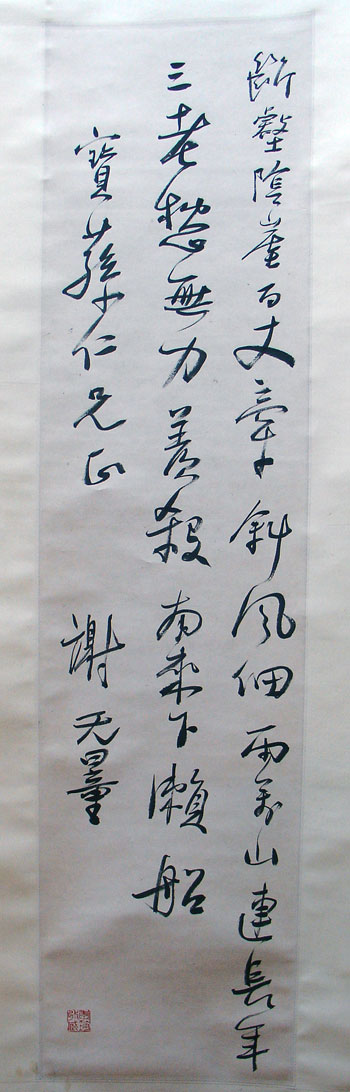 斷壑陰崖百丈牽斜風細雨萬山連長年
三老愁無力羨殺南來下瀨船
寶蓀仁兄正
謝无量